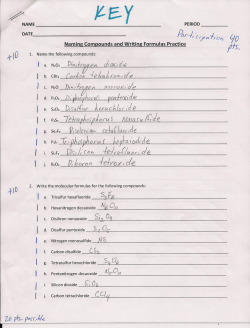 KEY
NAME PERIOD
DATE Participation 40 pts.
Naming Compounds and Writing Formulas Practice
+10 1. Name the following compounds:
a. Dinitrogen dioxide
b. CBr₄ Carbon tetrabromide
c. Dinitrogen monoxide
d. Diphosphorus pentoxide
e. Disulfur hexachloride
f. Tetraphosphorus nonasulfide
g. octafluoride
h. Triphosphorus heptaiodide
i. Disilicon tetrafluoride
j. Diboron tetroxide
+10 2. Write the molecular formulas for the following compounds:
a. Trisulfur hexafluoride S₃F₆
b. Hexanitrogen decaoxide N₆O₁₀
c. Disilicon nonaoxide Si₂O₉
d. Disulfur pentoxide S₂O₅
e. Nitrogen monosulfide NS
f. Carbon disulfide CS₂
g. Tetrasulfur
h. Pentanitrogen decaoxide N₅O₁₀
i. Silicon dioxide SiO₂
j. Carbon tetrachloride CCl₄
20 pts. possible